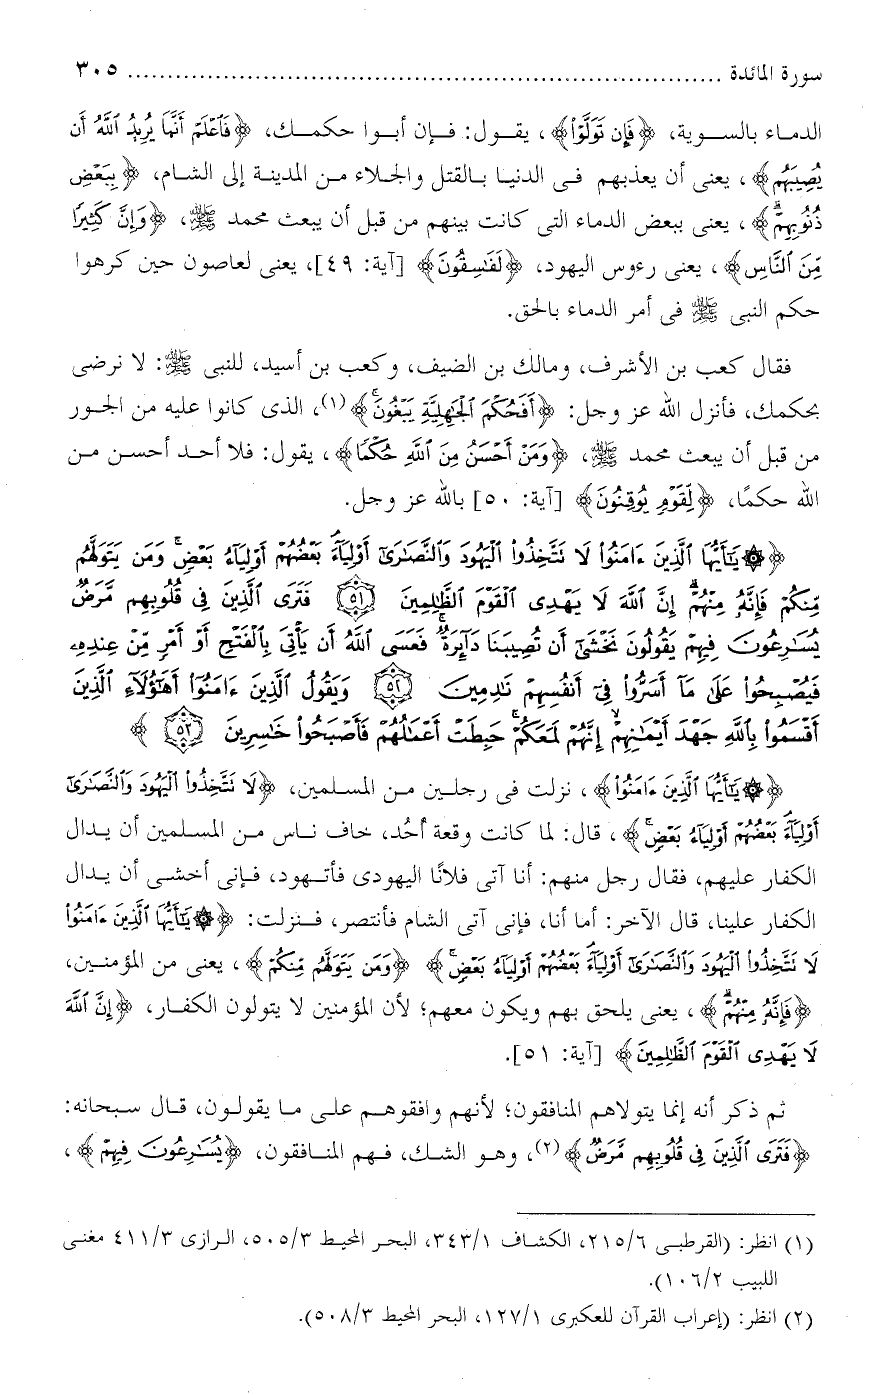 سورة المائدة ........................................................................ ٣٠٥
الدماء بالسوية، ﴿فَإِن تَوَلَّوْاْ﴾، يقول: فإن أبوا حكمك، ﴿فَاعْلَمْ أَنَّمَا يُرِيدُ اللَّهُ أَن
يُصِيبَهُم﴾، يعنى أن يعذبهم فى الدنيا بالقتل والجلاء من المدينة إلى الشام، ﴿بِبَعْضِ
ذُنُوبِهِمْ﴾، يعنى ببعض الدماء التى كانت بينهم من قبل أن يبعث محمد ﷺ، ﴿وَإِنَّ كَثِيرًا
مِّنَ النَّاسِ﴾، يعنى رءوس اليهود، ﴿لَفَاسِقُونَ﴾ [آية: ٤٩]، يعنى لعاصون حين كرهوا
حكم النبى ﷺ فى أمر الدماء بالحق.
فقال كعب بن الأشرف، ومالك بن الضيف، وكعب بن أسيد، للنبى ﷺ: لا نرضى
بحكمك، فأنزل الله عز وجل: ﴿أَفَحُكْمَ الْجَٰهِلِيَّةِ يَبْغُونَ﴾(١)، الذى كانوا عليه من الجور
من قبل أن يبعث محمد ﷺ، ﴿وَمَنْ أَحْسَنُ مِنَ اللَّهِ حُكْمًا﴾، يقول: فلا أحد أحسن من
الله حكمًا، ﴿لِّقَوْمٍ يُوقِنُونَ﴾ [آية: ٥٠] بالله عز وجل.
﴿۞ يَٰأَيُّهَا الَّذِينَ ءَامَنُواْ لَا تَتَّخِذُواْ الْيَهُودَ وَالنَّصَٰرَىٰ أَوْلِيَاءَ بَعْضُهُمْ أَوْلِيَاءُ بَعْضٍ وَمَن يَتَوَلَّهُم
مِّنكُمْ فَإِنَّهُ مِنْهُمْ إِنَّ اللَّهَ لَا يَهْدِى الْقَوْمَ الظَّٰلِمِينَ ٥١ فَتَرَى الَّذِينَ فِى قُلُوبِهِم مَّرَضٌ
يُسَٰرِعُونَ فِيهِمْ يَقُولُونَ نَخْشَىٰ أَن تُصِيبَنَا دَائِرَةٌ فَعَسَى اللَّهُ أَن يَأْتِىَ بِالْفَتْحِ أَوْ أَمْرٍ مِّنْ عِندِهِ
فَيُصْبِحُواْ عَلَىٰ مَا أَسَرُّواْ فِى أَنفُسِهِمْ نَٰدِمِينَ ٥٢ وَيَقُولُ الَّذِينَ ءَامَنُواْ أَهَٰؤُلَاءِ الَّذِينَ
أَقْسَمُواْ بِاللَّهِ جَهْدَ أَيْمَٰنِهِمْ إِنَّهُمْ لَمَعَكُمْ حَبِطَتْ أَعْمَٰلُهُمْ فَأَصْبَحُواْ خَٰسِرِينَ ٥٣ ﴾
﴿۞ يَٰأَيُّهَا الَّذِينَ ءَامَنُواْ﴾، نزلت فى رجلين من المسلمين، ﴿لَا تَتَّخِذُواْ الْيَهُودَ وَالنَّصَٰرَىٰ
أَوْلِيَاءَ بَعْضُهُمْ أَوْلِيَاءُ بَعْضٍ﴾، قال: لما كانت وقعة أُحُد، خاف ناس من المسلمين أن يدال
الكفار عليهم، فقال رجل منهم: أنا آتى فلانًا اليهودى فأتهود، فإنى أخشى أن يدال
الكفار علينا، قال الآخر: أما أنا، فإنى آتى الشام فأنتصر، فنزلت: ﴿۞ يَٰأَيُّهَا الَّذِينَ ءَامَنُواْ
لَا تَتَّخِذُواْ الْيَهُودَ وَالنَّصَٰرَىٰ أَوْلِيَاءَ بَعْضُهُمْ أَوْلِيَاءُ بَعْضٍ﴾ ﴿وَمَن يَتَوَلَّهُم مِّنكُمْ﴾، يعنى من المؤمنين،
﴿فَإِنَّهُ مِنْهُمْ﴾، يعنى يلحق بهم ويكون معهم؛ لأن المؤمنين لا يتولون الكفار، ﴿إِنَّ اللَّهَ
لَا يَهْدِى الْقَوْمَ الظَّٰلِمِينَ﴾ [آية: ٥١].
ثم ذكر أنه إنما يتولاهم المنافقون؛ لأنهم وافقوهم على ما يقولون، قال سبحانه:
﴿فَتَرَى الَّذِينَ فِى قُلُوبِهِم مَّرَضٌ﴾(٢)، وهو الشك، فهم المنافقون، ﴿يُسَٰرِعُونَ فِيهِمْ﴾،
(١) انظر: (القرطبى ٢١٥/٦، الكشاف ٣٤٣/١، البحر المحيط ٥٠٥/٣، الرازى ٤١١/٣ مغنى
اللبيب ١٠٦/٢).
(٢) انظر: (إعراب القرآن للعكبرى ١٢٧/١، البحر المحيط ٥٠٨/٣).